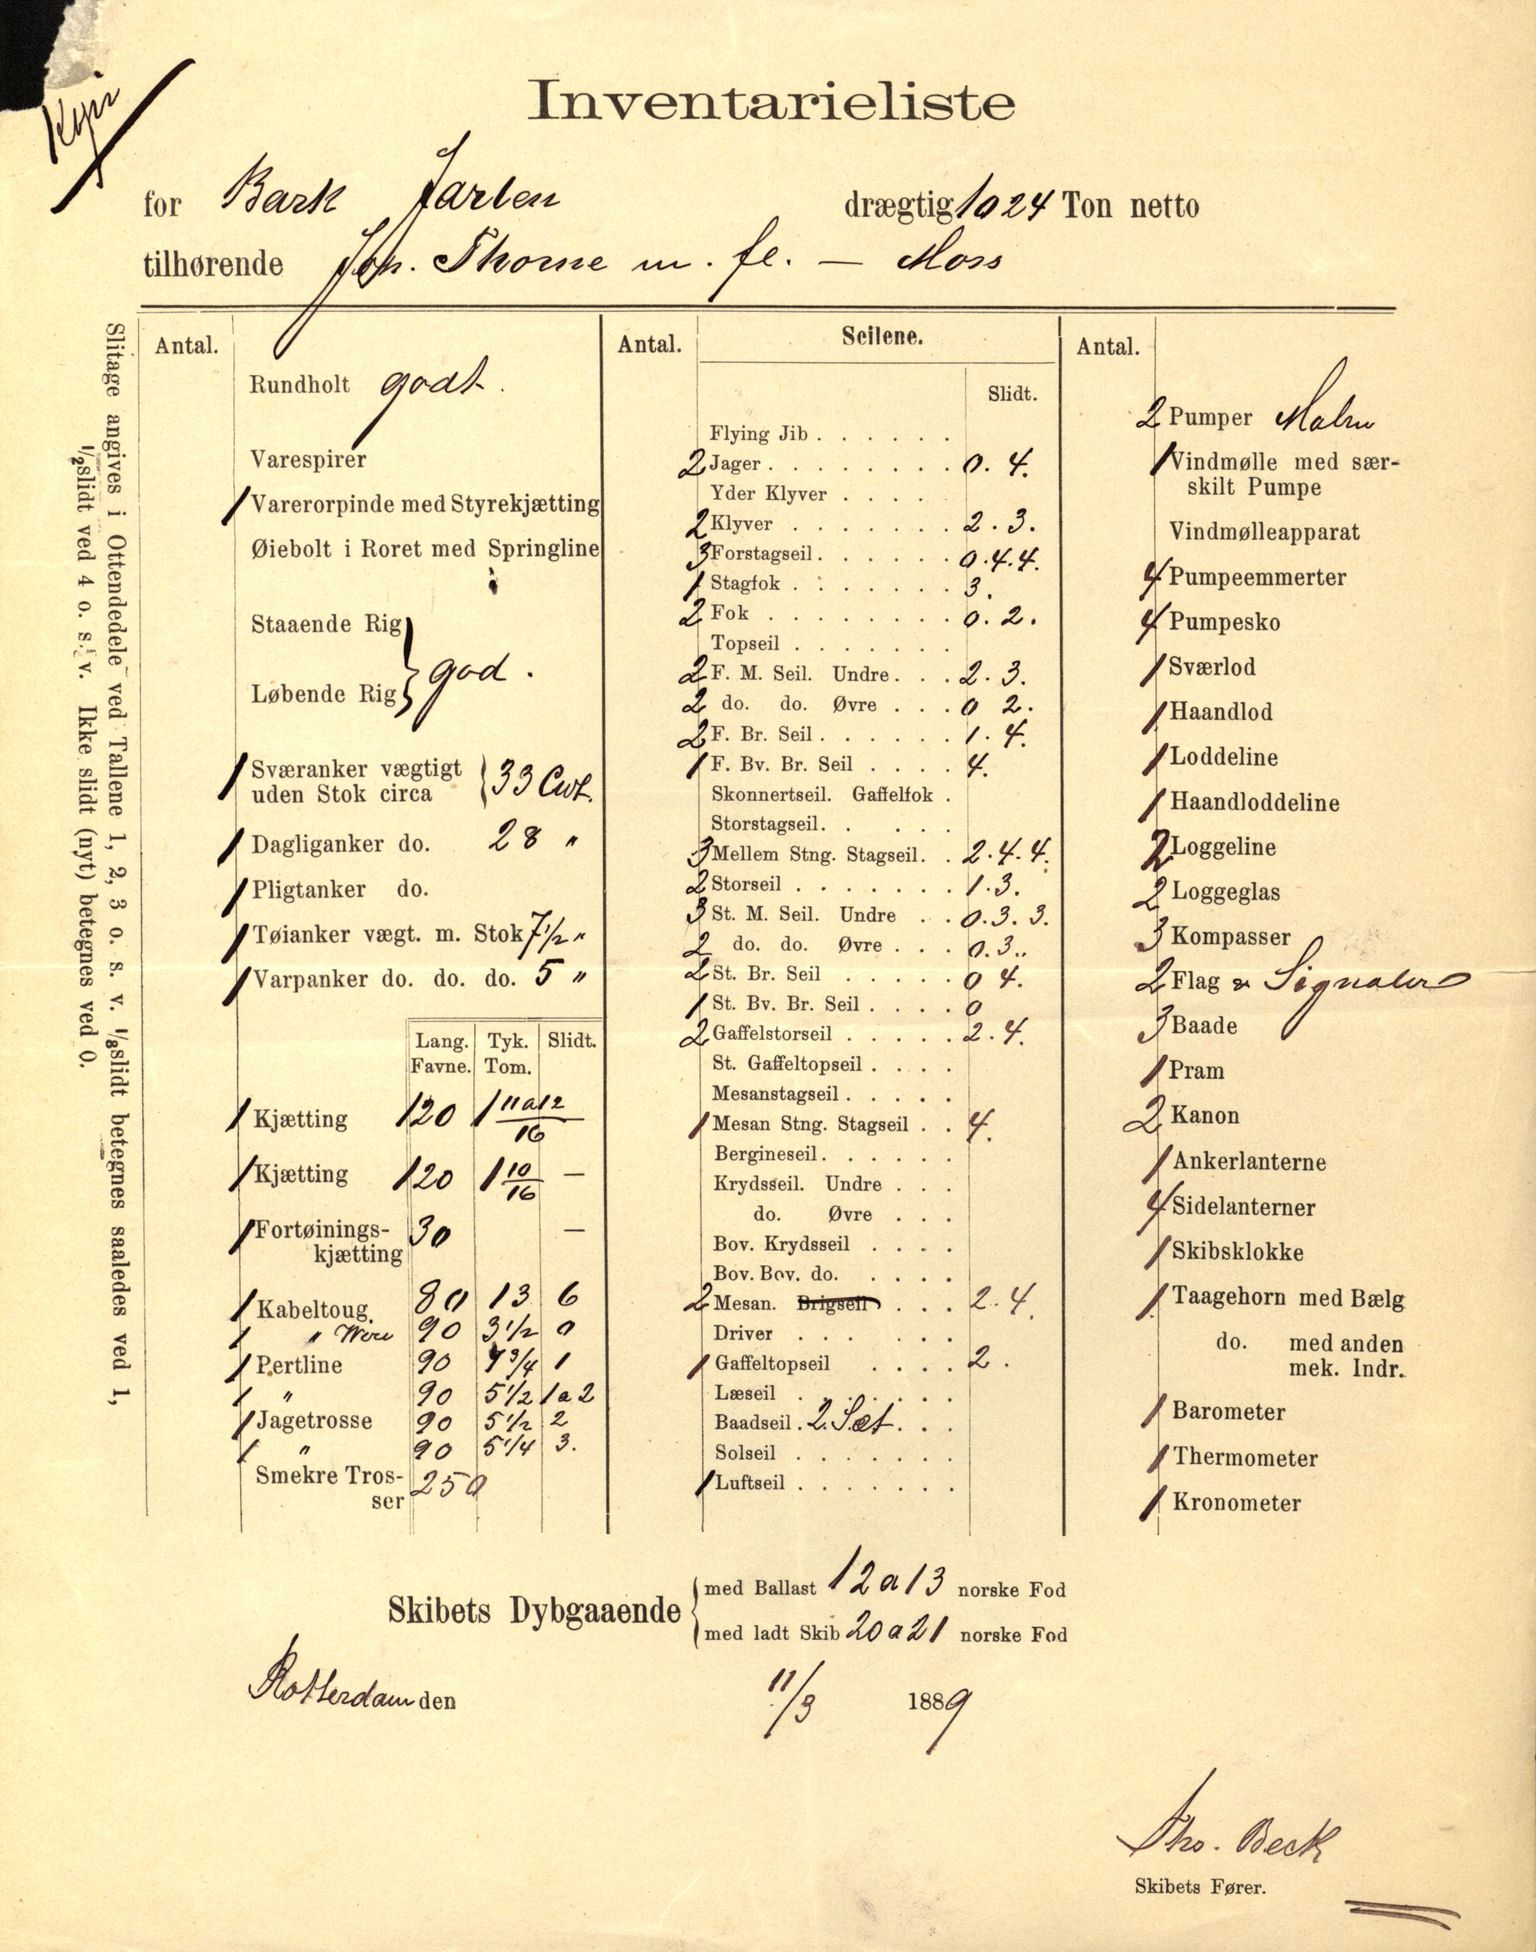 Kopi
Inventarieliste
for Bark Jarlen drægtig 1024 Ton netto
tilhørende Joh. Thorne m. fl. — Moss
Slitage angives i Ottendedele ved Tallene 1, 2, 3 o. s. v. 1/8 slidt betegnes saaledes ved 1,
1/2 slidt ved 4 o. s. v. Ikke slidt (nyt) betegnes ved 0.
Antal.
Rundholt godt.
Varespirer
1 Varerorpinde med Styrekjætting
Øiebolt i Roret med Springline
Staaende Rig
Løbende Rig } god.
1 Sværanker vægtigt
uden Stok circa } 33 Cwt.
1 Dagliganker do. 28 "
1 Pligtanker do.
1 Tøianker vægt. m. Stok 7 1/2 "
1 Varpanker do. do. do. 5 "
Lang. Favne. Tyk. Tom. Slidt.
1 Kjætting 120 1 11 a 12/16
1 Kjætting 120 1 10/16 —
1 Fortøinings-
kjætting 30 —
1 Kabeltoug. 80 13 6
1 " Wire 90 3 1/2 0
1 Pertline 90 7 3/4 1
1 " 90 5 1/2 1 a 2
1 Jagetrosse 90 5 1/2 2
1 " 90 5 1/4 3.
Smekre Tros-
ser 250
Antal. Seilene.
Slidt.
Flying Jib . . . . . .
2 Jager . . . . . . . . 0. 4.
Yder Klyver . . . .
2 Klyver . . . . . . . 2. 3.
3 Forstagseil . . . . . . 0. 4. 4.
1 Stagfok . . . . . . . 3.
2 Fok . . . . . . . . 0. 2.
Topseil . . . . . . .
2 F. M. Seil. Undre . . . 2. 3.
2 do. do. Øvre . . . 0 2.
2 F. Br. Seil . . . . . . 1. 4.
1 F. Bv. Br. Seil . . . . 4.
Skonnertseil. Gaffelfok .
Storstagseil . . . . .
3 Mellem Stng. Stagseil . . 2. 4. 4.
2 Storseil . . . . . . . 1. 3.
3 St. M. Seil. Undre . . 0. 3. 3.
2 do. do. Øvre . . . 0. 3..
2 St. Br. Seil . . . . . 0 4.
1 St. Bv. Br. Seil . . . . 0
2 Gaffelstorseil . . . . . 2. 4.
St. Gaffeltopseil . . . .
Mesanstagseil . . . . .
1 Mesan Stng. Stagseil . . 4.
Bergineseil . . . . . .
Krydsseil. Undre . . .
do. Øvre . . .
Bov. Krydsseil . . . .
Bov. Bov. do. . . . .
2 Mesan. Brigseil . . . 2. 4.
Driver . . . . . . .
1 Gaffeltopseil . . . . 2.
Læseil . . . . . . .
Baadseil . 2. Sæt . . .
Solseil . . . . . . .
1 Luftseil . . . . . . .
Antal.
2 Pumper Malm
1 Vindmølle med sær-
skilt Pumpe
Vindmølleapparat
4 Pumpeemmerter
4 Pumpesko
1 Sværlod
1 Haandlod
1 Loddeline
1 Haandloddeline
2 Loggeline
2 Loggeglas
3 Kompasser
2 Flag & Signaler
3 Baade
1 Pram
2 Kanon
1 Ankerlanterne
4 Sidelanterner
1 Skibsklokke
1 Taagehorn med Bælg
do. med anden
mek. Indr.
1 Barometer
1 Thermometer
1 Kronometer
Skibets Dybgaaende { med Ballast 12 a 13 norske Fod
med ladt Skib 20 a 21 norske Fod
Rotterdam den 11/3 1889
Ths. Beck
Skibets Fører.